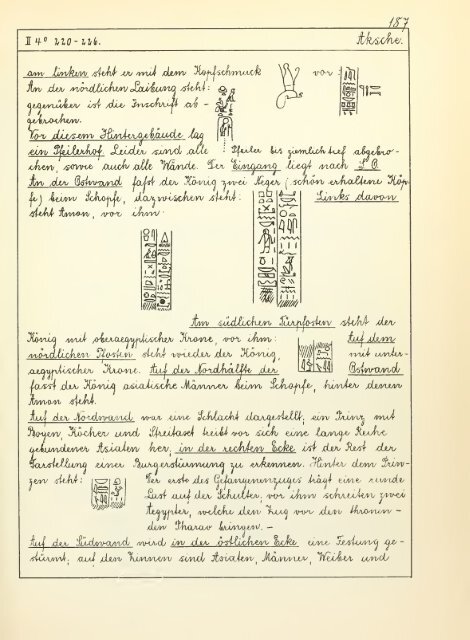 187
II 4° 220-226. Aksche.
am linken steht er mit dem Kopfschmuck vor
An der nördlichen Laibung steht:
gegenüber ist die Inschrift ab-
gebrochen.
Vor diesem Hintergebäude lag
ein Pfeilerhof. Leider sind alle Pfeiler bis ziemlich tief abgebro-
chen, sowie auch alle Wände. Der Eingang liegt nach S.O.
An der Ostwand fasst der König zwei Neger (schön erhaltene Köp-
fe) beim Schopfe, dazwischen steht: Links davon
steht Amon, vor ihm:
Am südlichen Türpfosten steht der
König mit oberaegyptischer Krone, vor ihm: Auf dem
nördlichen Pfosten steht wieder der König, mit unter-
aegyptischer Krone. Auf der Nordhälfte der Ostwand
fasst der König asiatische Männer beim Schopfe, hinter denen
Amon steht.
Auf der Nordwand war eine Schlacht dargestellt; ein Prinz mit
Bogen, Köcher und Streitaxt treibt vor sich eine lange Reihe
gebundener Asiaten her; in der rechten Ecke ist der Rest der
Darstellung einer Burgerstürmung zu erkennen. Hinter dem Prin-
zen steht: Der erste des Gefangenenzuges trägt eine runde
Last auf der Schulter, vor ihm schreiten zwei
Aegypter, welche den Zug vor den thronen-
den Pharao bringen. –
Auf der Südwand wird in der östlichen Ecke eine Festung ge-
stürmt; auf den Zinnen sind Asiaten, Männer, Weiber und